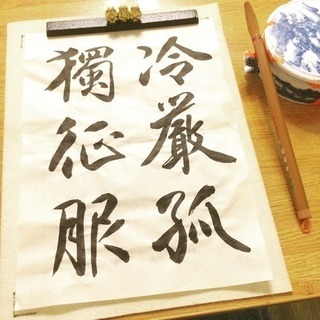 冷嚴孤
獨征服